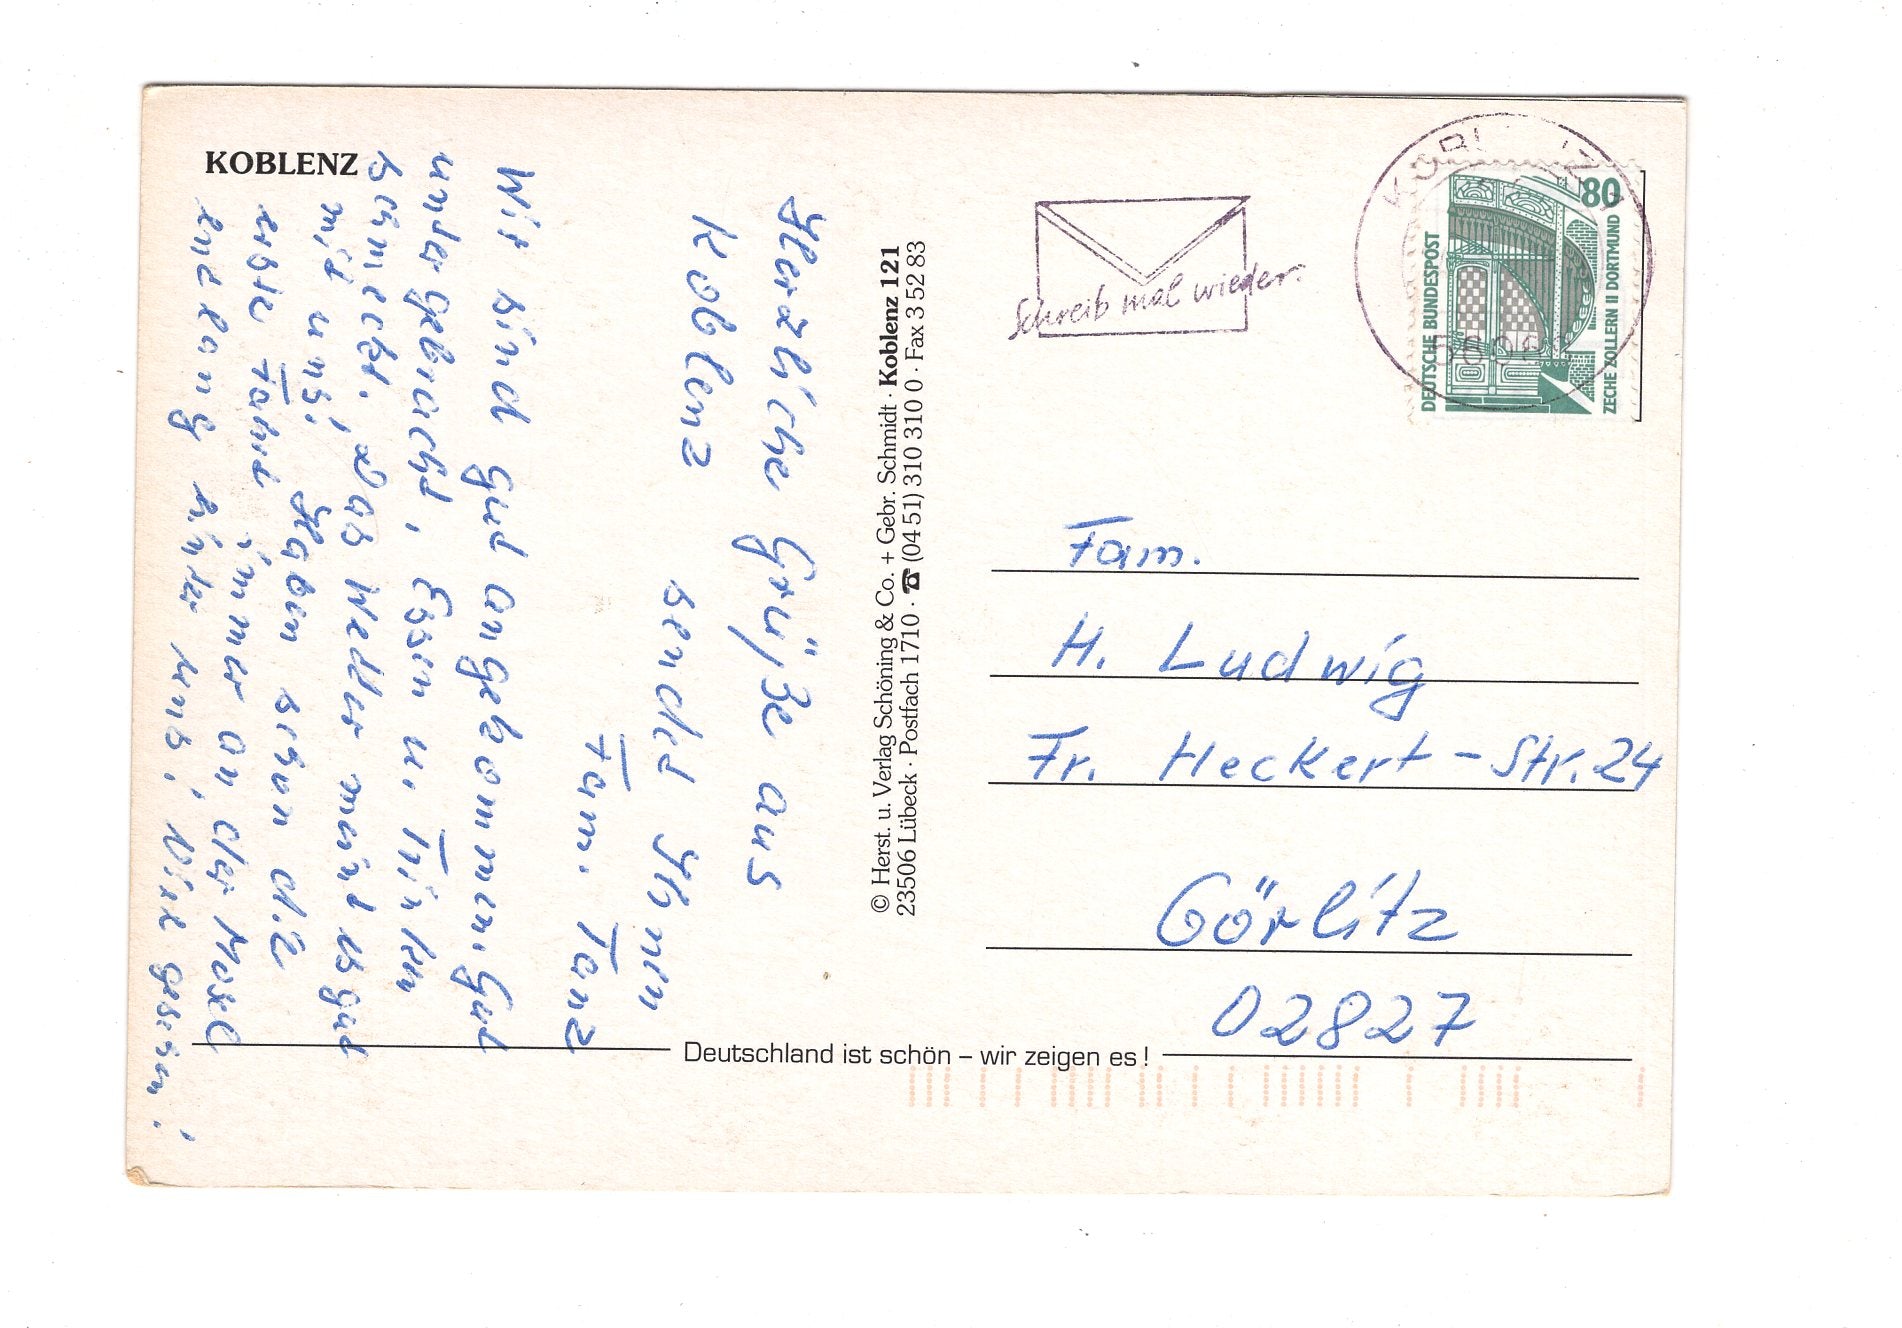 KOBLENZ
Herzliche Grüße aus
Koblenz
sendet Ihnen
Fam. Tanz
Wir sind gut angekommen. Gut
untergebracht, Essen u. Trinken
schmeckt. Das Wetter meint es gut
mit uns. Haben schon die
erste Fahrt immer an der Mosel
entlang hinter uns. Viel gesehen!
© Herst. u. Verlag Schöning & Co. + Gebr. Schmidt · Koblenz 121
23506 Lübeck · Postfach 1710 · ☎ (04 51) 310 310 0 · Fax 3 52 83
Schreib mal wieder.
80
DEUTSCHE BUNDESPOST
ZECHE ZOLLERN II DORTMUND
Fam.
H. Ludwig
Fr. Heckert-Str. 24
Görlitz
02827
Deutschland ist schön – wir zeigen es!